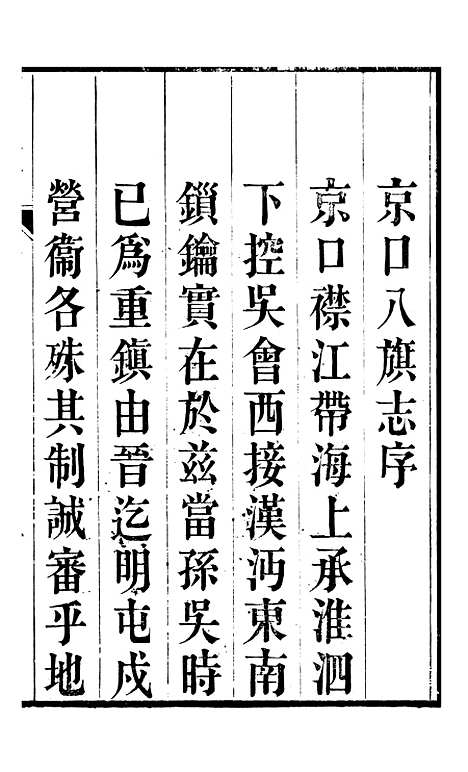 京口八旗志序
京口襟江帶海上承淮泗
下控吳會西接漢沔東南
鎖鑰實在於茲當孫吳時
已爲重鎮由晉迄明屯戍
營衞各殊其制誠審乎地